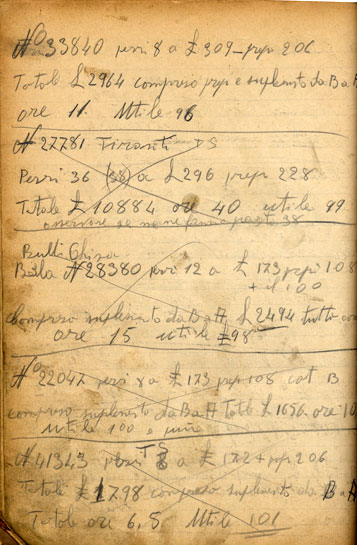 No 33840 pezzi 8 a £ 309 – prep 206
Totale £ 2964 compreso prep e suplemento da B a A
ore 11. Utile 96
N 27781 Tiranti DS
Pezzi 36 (38) a £ 296 prep 228
Totale £ 10884 ore 40 utile 99
osservare se ne ne a parte 38
Bulli Ghisa
N 28380 pezzi 12 a £ 173 prep 108
+ il 100
Compreso suplemento da B a A £ 2494 tutto
ore 15 utile £ 98
No 22047 pezzi 8 a £ 173 prep 108 cat B
compreso suplemento da B a A Totale £ 1656. ore 10
Utile 100 e più
TS
N 41343 pezzi 8 a £ 172 + prep 206
Totale £ 1798 compreso suplemento da B a A
Totale ore 6,5 Utile 101